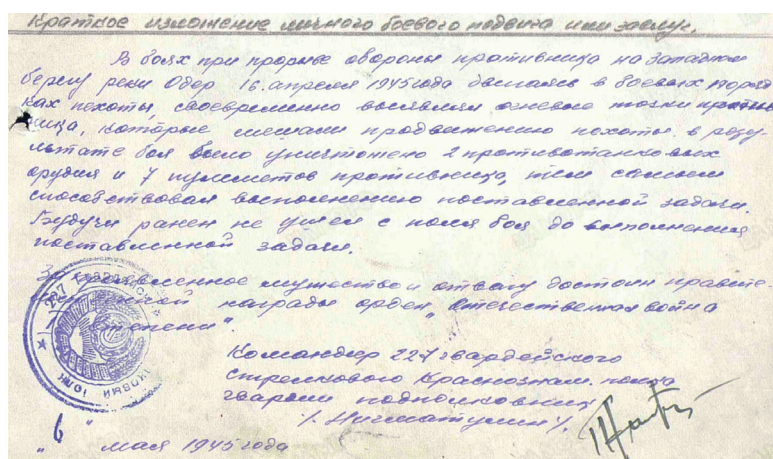 Краткое изложение личного боевого подвига или заслуг.
В боях при прорыве обороны противника на западном
берегу реки Одер 16.апреля 1945 года двигаясь в боевых поряд
ках пехоты, своевременно выявлял огневые точки против
ника, которые мешали продвижению пехоты. в резу
льтате боя было уничтожено 2 противотанковых
орудия и 7 пулеметов противника, тем самым
способствовал выполнению поставленной задачи.
Будучи ранен не ушел с поля боя до выполнения
поставленной задачи.
За проявленное мужество и отвагу достоин правите-
награды орден „Отечественная война
степени".
Командир 227 гвардейского
стрелкового Краснознам. полка
гвардии подполковник
/. Нигматулин /.
„ 6 " мая 1945 года